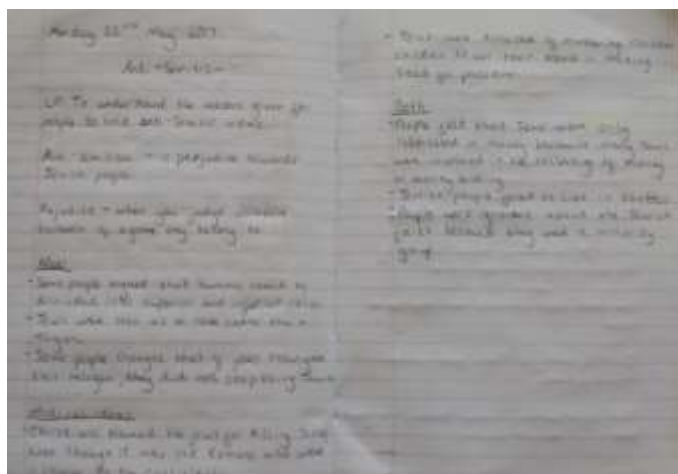 Monday 22nd May 2017
Anti-Semitism
LO: To understand the reasons given for
people to hold anti-Semitic views.
Anti-Semitism - is prejudice towards
Jewish people.
Prejudice - when you judge someone
because of a group they belong to.
• Some people argued that humans could be
divided into superior and inferior races
• Jews were seen as a race rather than a
religion
• Some people thought that if Jews changed
their religion, they did not stop being Jews
Christians blamed the Jews for killing Jesus
even though it was the Romans who were
• Jews were accused of murdering Christian
children to use their blood in making
bread for passover.
Both
• People felt that Jews were only
interested in money because many Jews
were involved in the of money
or money lending
• Jewish people forced to live in ghettos
People were about the Jewish
because they were a minority
group